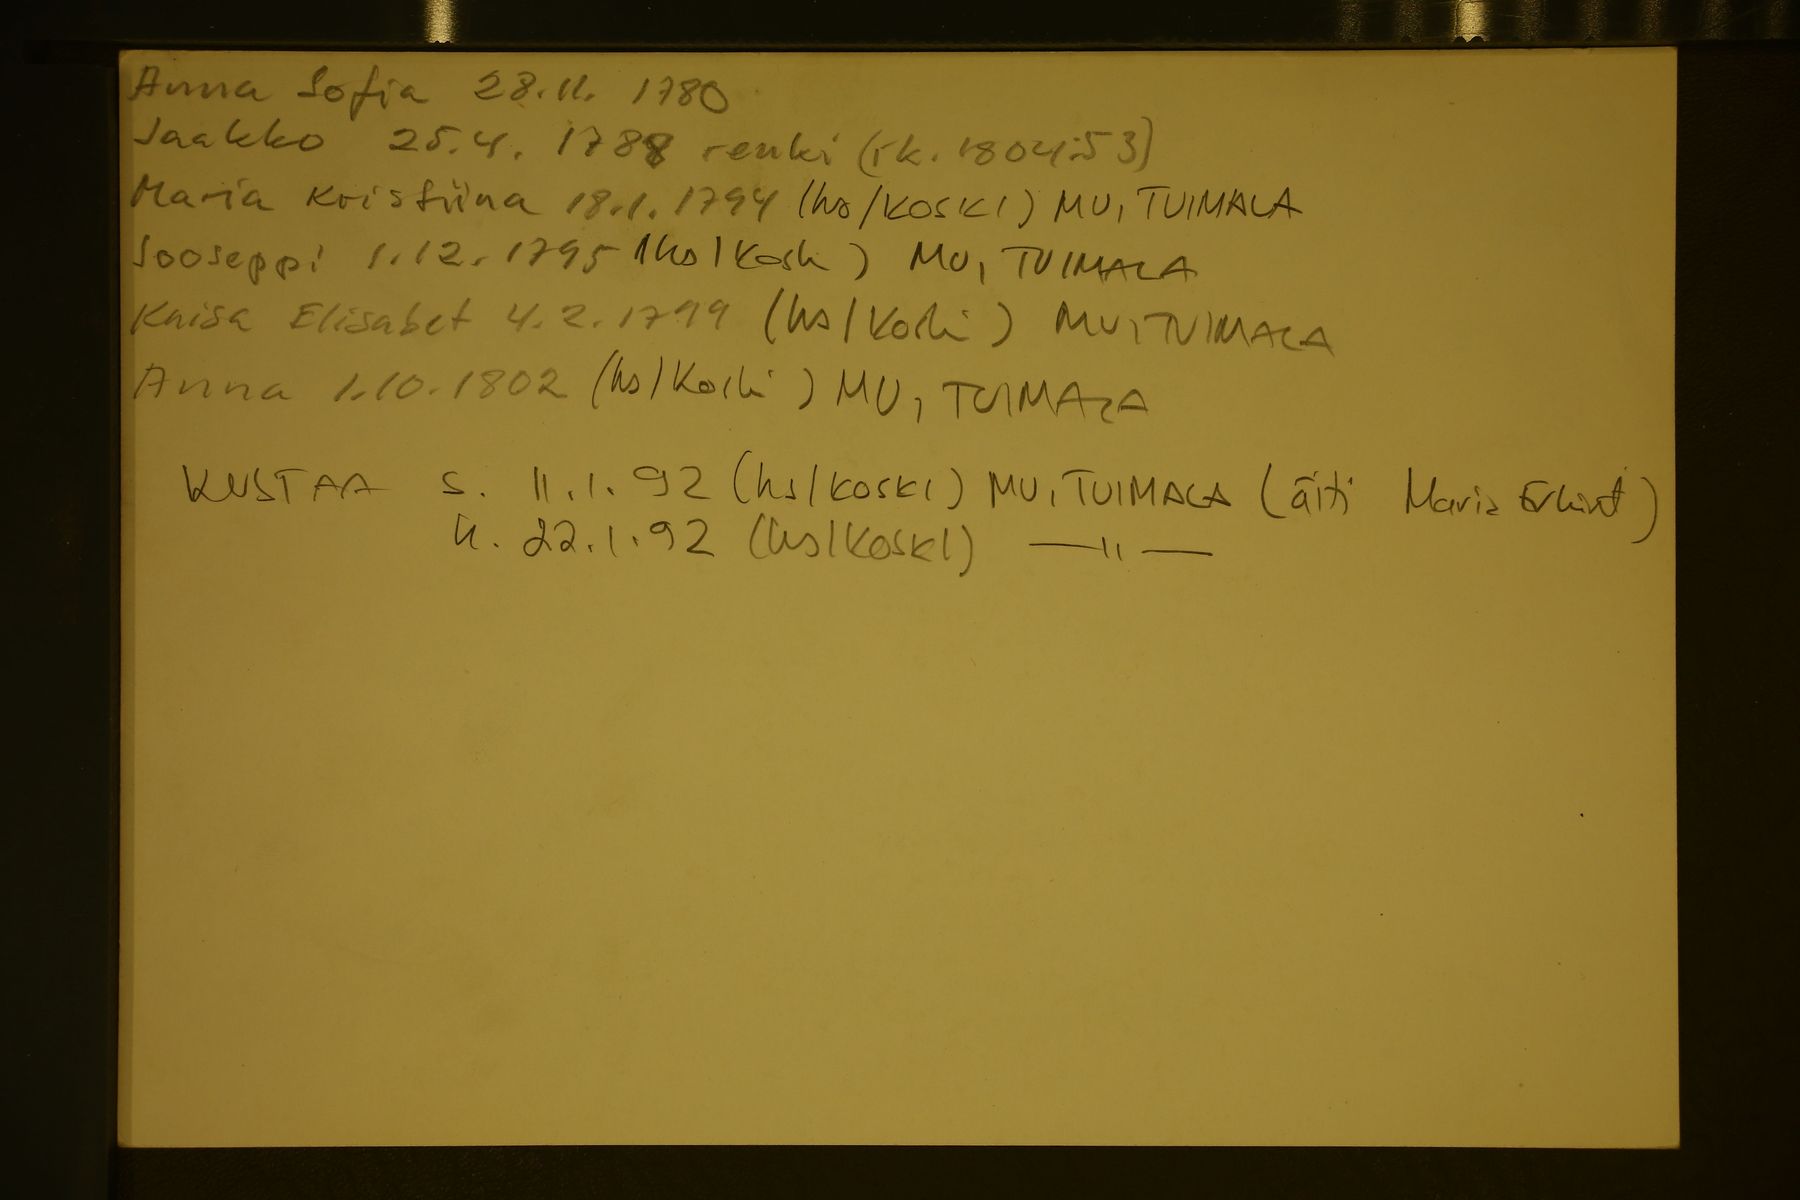 Anna Sofia 28.11. 1780
Jaakko 25.4. 1788 renki (rk. 1804:53)
Maria Kristiina 18.1.1794 (hs/KOSKI) MU, TUIMALA
Jooseppi 1.12.1795 (hs/Koski) MU, TUIMALA
Kaisa Elisabet 4.2.1799 (hs/Koski) MU, TUIMALA
Anna 1.10.1802 (hs/Koski) MU, TUIMALA
KUSTAA s. 11.1.92 (hs/KOSKI) MU, TUIMALA (äiti Maria)
k. 22.1.92 (hs/KOSKI) —"—